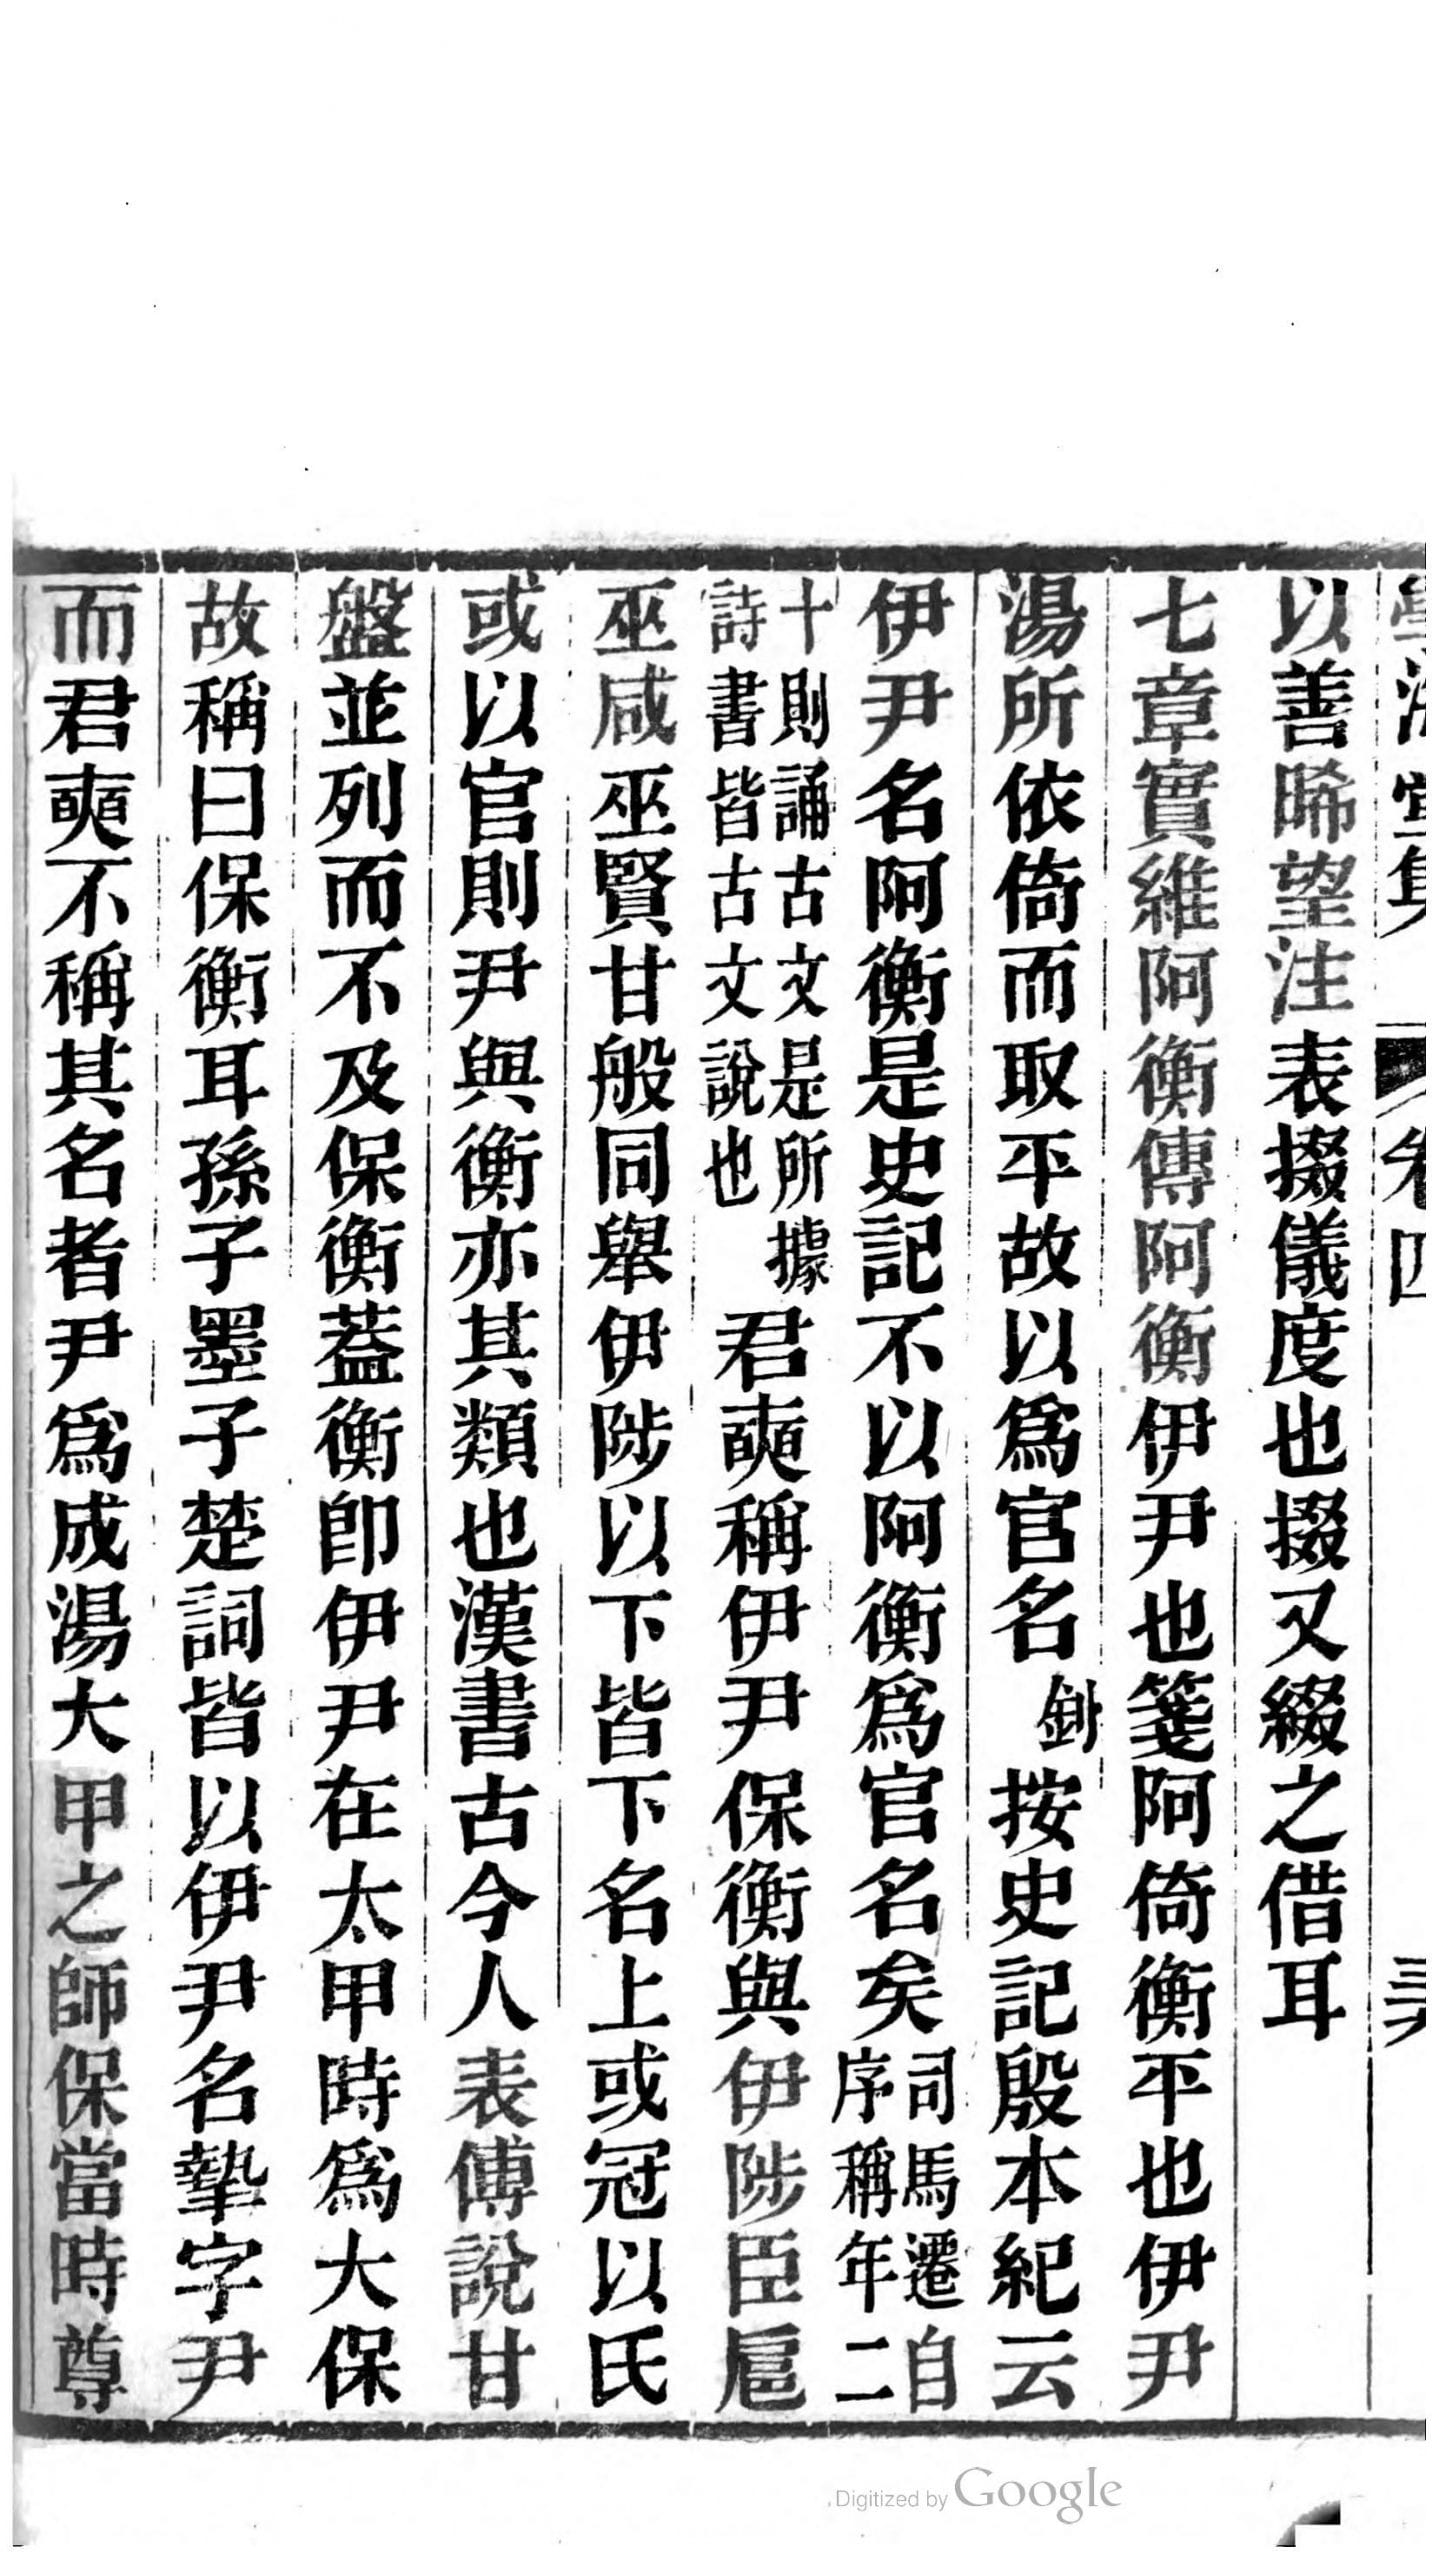 學海堂集 卷四
以善晞望注表掇儀度也掇又綴之借耳
七章實維阿衡傳阿衡伊尹也箋阿倚衡平也伊尹
湯所依倚而取平故以爲官名釗按史記殷本紀云
伊尹名阿衡是史記不以阿衡爲官名矣司馬遷自序稱年二
十則誦古文是所據詩書皆古文說也君奭稱伊尹保衡與伊陟臣扈
巫咸巫賢甘般同舉伊陟以下皆下名上或冠以氏
或以官則尹與衡亦其類也漢書古今人表傅說甘
盤並列而不及保衡蓋衡卽伊尹在太甲時爲大保
故稱曰保衡耳孫子墨子楚詞皆以伊尹名摯字尹
而君奭不稱其名者尹爲成湯大甲之師保當時尊
Digitized by Google